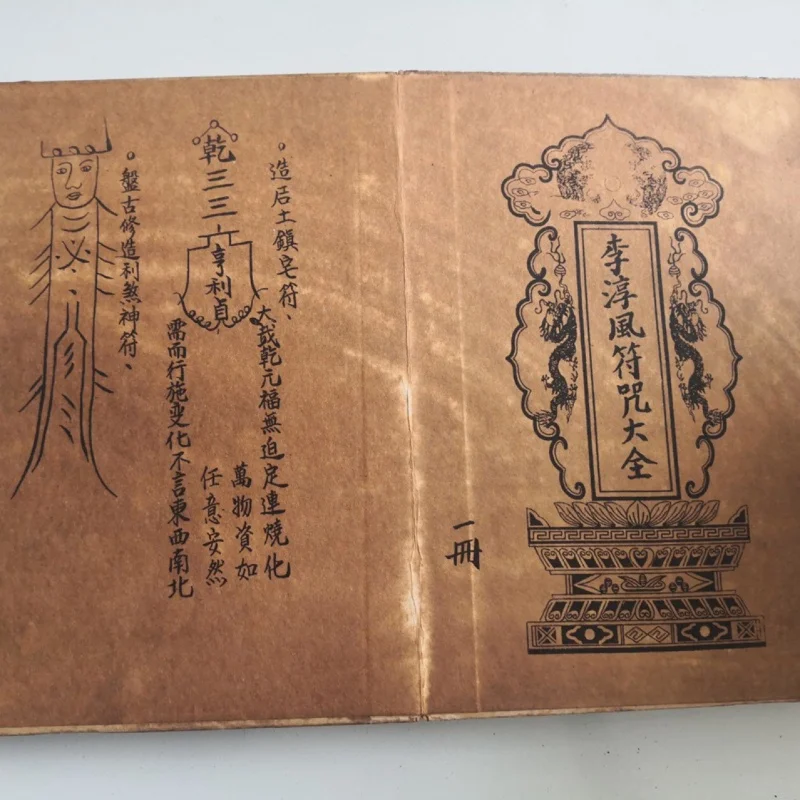 李淳風符咒大全
一冊
。造居土鎮宅符、
大哉乾元福無迫定連燒化
萬物資如
任意安然
需而行施变化不言東西南北
乾三三
亨利貞
。盤古修造利煞神符、